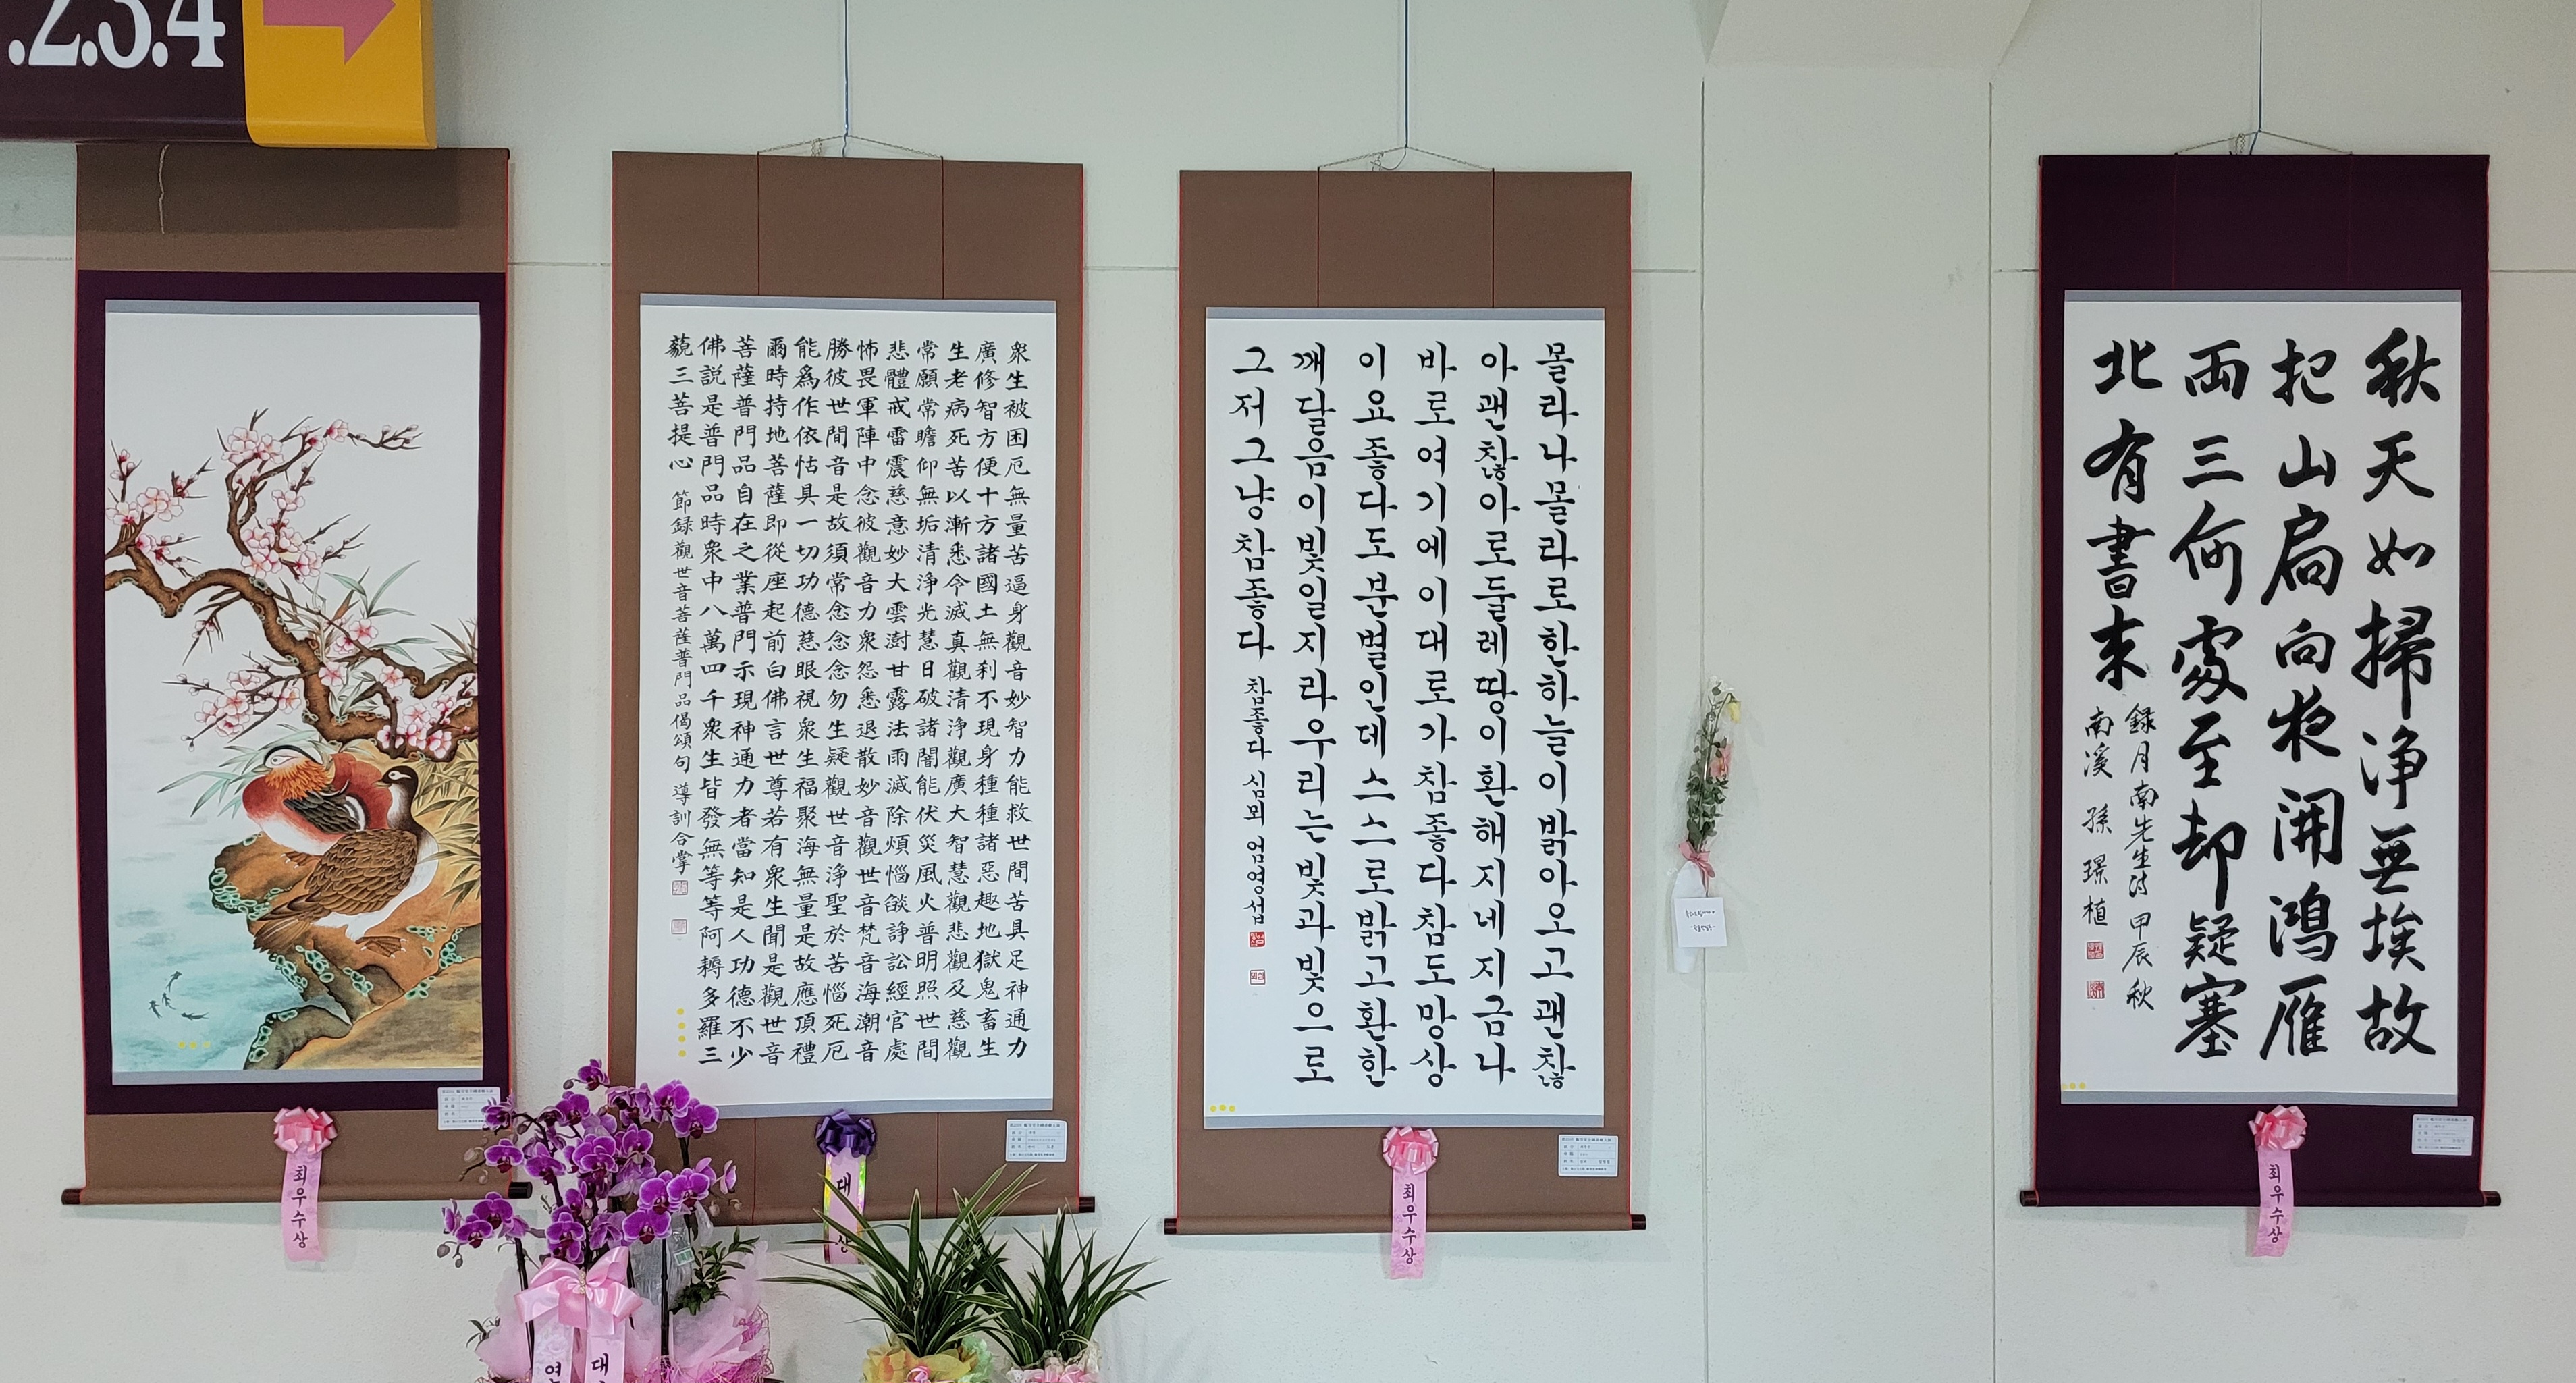 .2.3.4
衆生被困厄無量苦逼身觀音妙智力能救世間苦具足神通力
廣修智方便十方諸國土無刹不現身種種諸惡趣地獄鬼畜生
生老病死苦以漸悉令滅真觀清淨觀廣大智慧觀悲觀及慈觀
常願常瞻仰無垢清淨光慧日破諸闇能伏災風火普明照世間
悲體戒雷震慈意妙大雲澍甘露法雨滅除煩惱燄諍訟經官處
怖畏軍陣中念彼觀音力衆怨悉退散妙音觀世音梵音海潮音
勝彼世間音是故須常念念念勿生疑觀世音淨聖於苦惱死厄
能爲作依怙具一切功德慈眼視衆生福聚海無量是故應頂禮
爾時持地菩薩即從座起前白佛言世尊若有衆生聞是觀世音
菩薩普門品自在之業普門示現神通力者當知是人功德不少
佛説是普門品時衆中八萬四千衆生皆發無等等阿耨多羅三
藐三菩提心 節録觀世音菩薩普門品偈頌句 導訓合掌
몰라나몰라로한하늘이밝아오고괜찮
아괜찮아로둘레땅이환해지네지금나
바로여기에이대로가참좋다참도망상
이요좋다도분별인데스스로밝고환한
깨달음이빛일지라우리는빛과빛으로
그저그냥참좋다 참좋다 심뫼 엄영섭
秋天如掃淨無埃故
把山扃向夜開鴻雁
両三何處至却疑塞
北有書来
録月南先生詩 甲辰秋
南溪 孫璟植
최우수상
대상
최우수상
최우수상